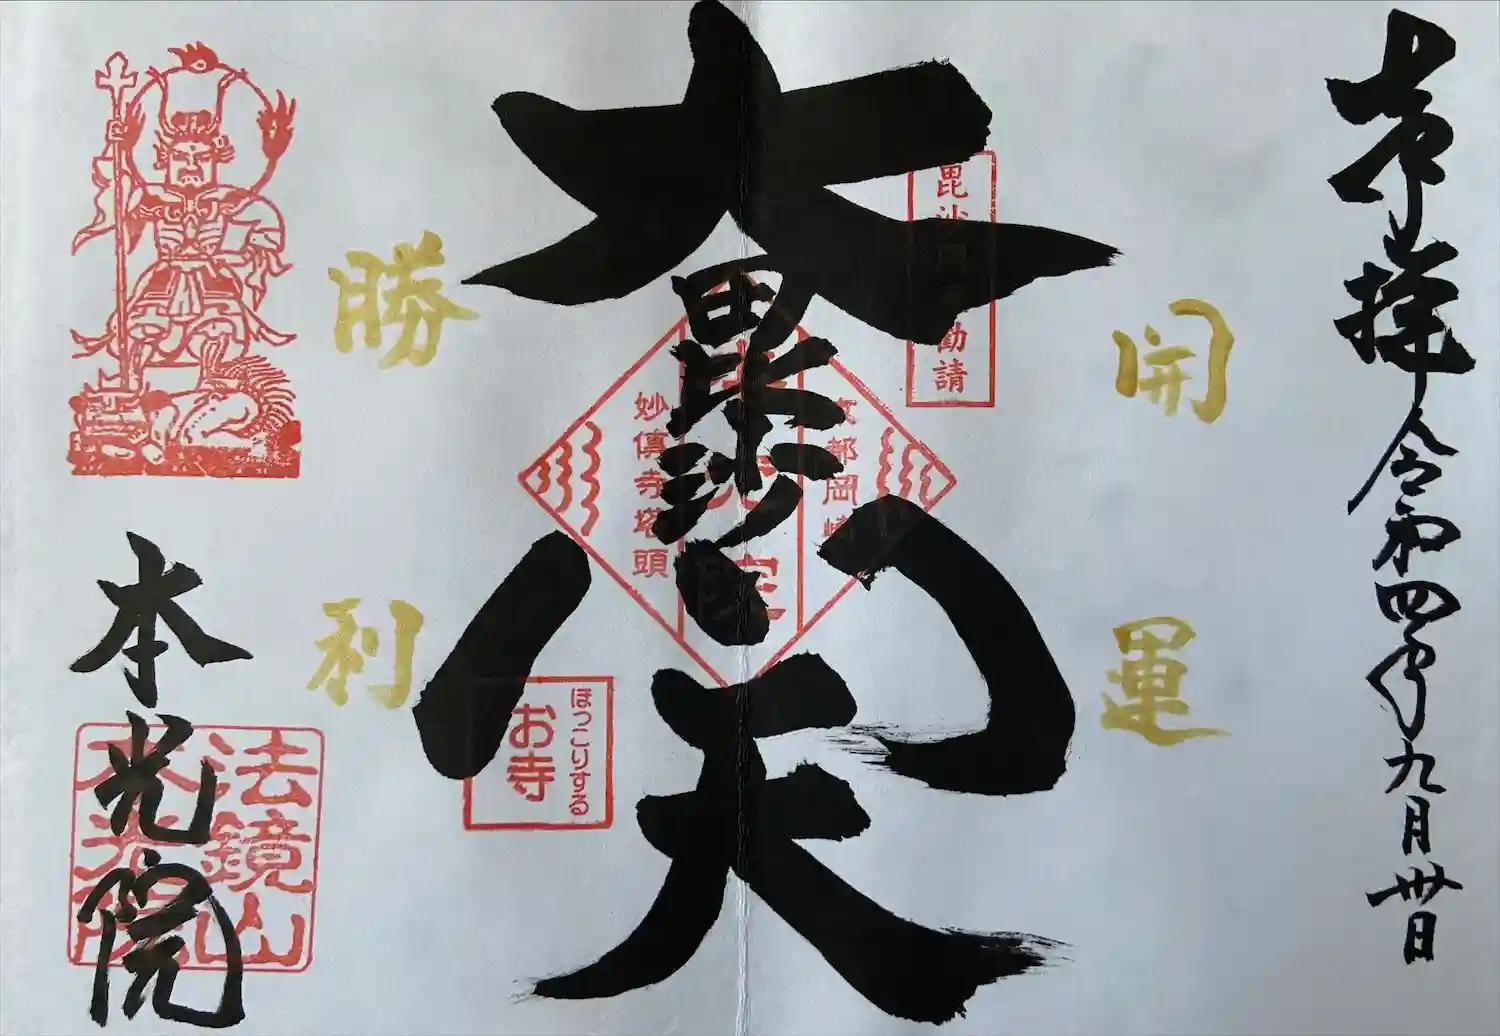 奉拝
令和四年九月卅日
開運
毘沙
勧請
大毘沙門天
京都岡崎
妙傳寺塔頭
ほっこりする
お寺
勝利
本光院
法鏡山
本光院